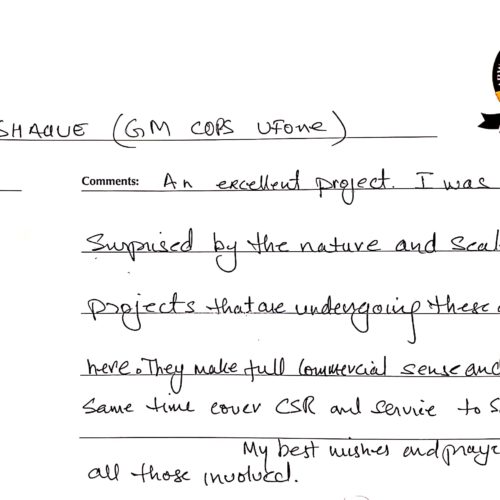 SHAQUE (GM COPS UFONE)
Comments: An excellent project. I was
Surprised by the nature and Scal
projects that are undergoing these
here. They make full Commercial sense and
Same time cover CSR and service to S
My best wishes and praye
all those involved.